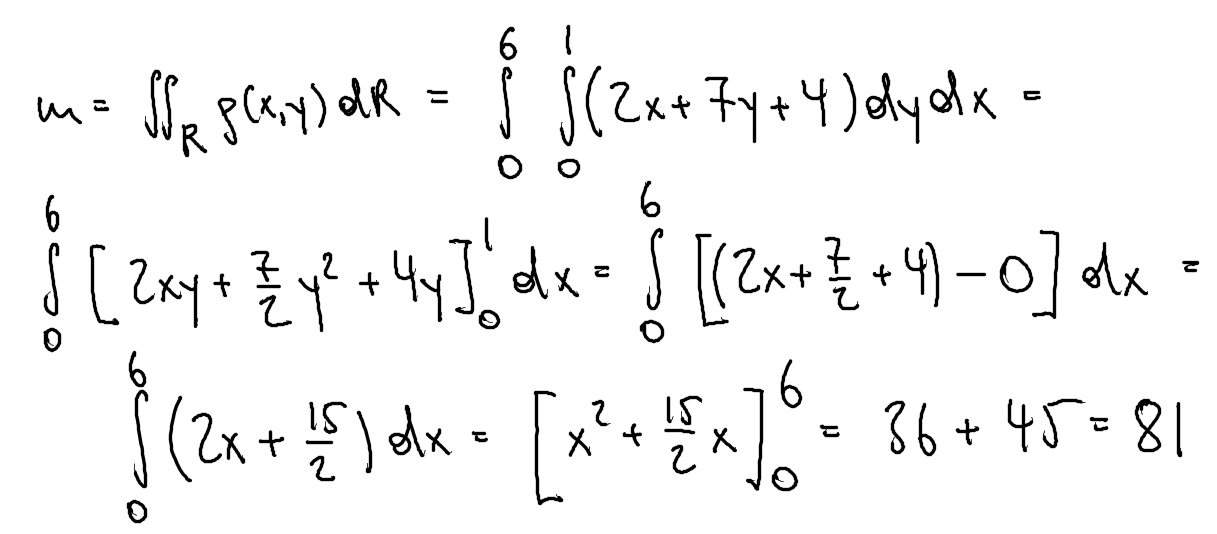 m = ∬_R ρ(x,y) dR = ∫_0^6 ∫_0^1 (2x + 7y + 4) dy dx =
∫_0^6 [2xy + 7/2 y² + 4y]_0^1 dx = ∫_0^6 [(2x + 7/2 + 4) − 0] dx =
∫_0^6 (2x + 15/2) dx = [x² + 15/2 x]_0^6 = 36 + 45 = 81